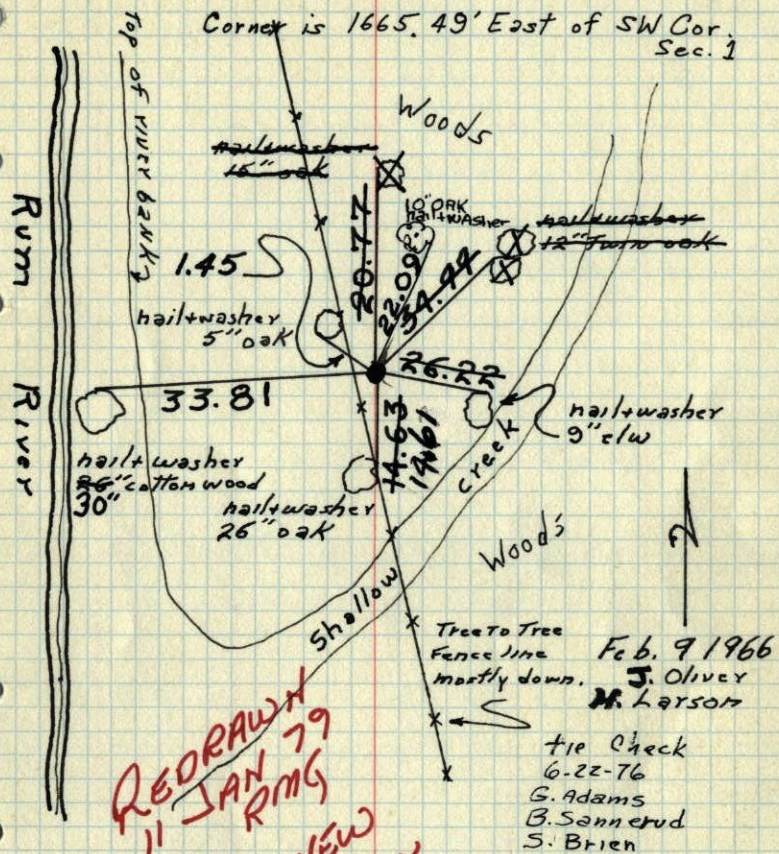 Corner is 1665.49' East of SW Cor.
Sec. 1
Top of river bank
Woods
nail+washer
15" oak
10" OAK
nail+WASHER
nail+washer
12" Twin oak
Rum River
20.77
22.09
1.45
54.44
nail+washer
5" oak
26.22
33.81
nail+washer
9" elm
14.63
14.61
nail+washer
26" cottonwood
30"
nail+washer
26" oak
Shallow creek
Woods
N
Tree To Tree
Fence line
mostly down.
Feb. 9 1966
J. Oliver
M. Larson
tie Check
6-22-76
G. Adams
B. Sannerud
S. Brien
REDRAWN
11 JAN 79
RMG